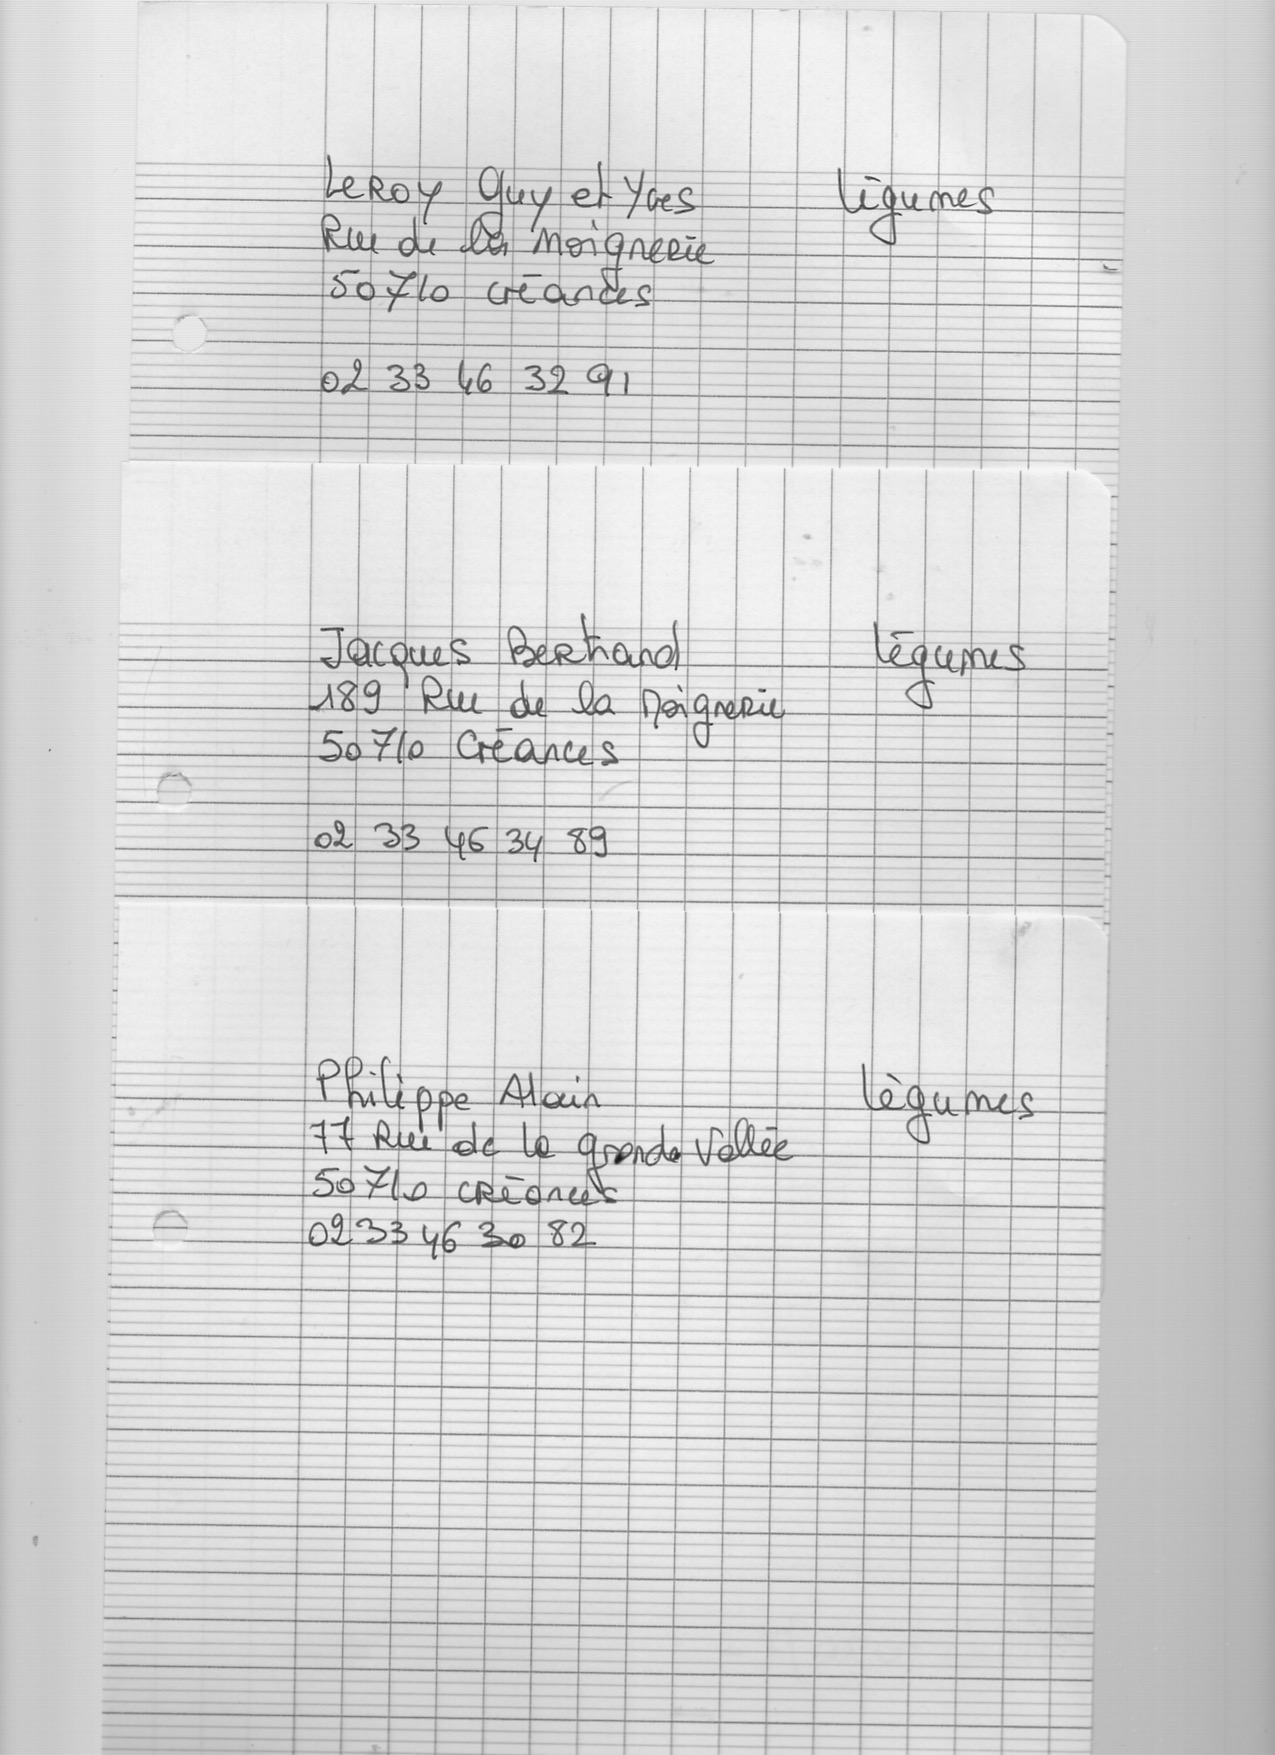 LEROY Guy et Yves légumes
Rue de la Moignerie
50710 Créances
02 33 46 32 91
Jacques Bertrand légumes
189 Rue de la Moignerie
50710 Créances
02 33 46 34 89
Philippe Alain légumes
77 Rue de la grande Vallée
50710 Créances
02 33 46 30 82